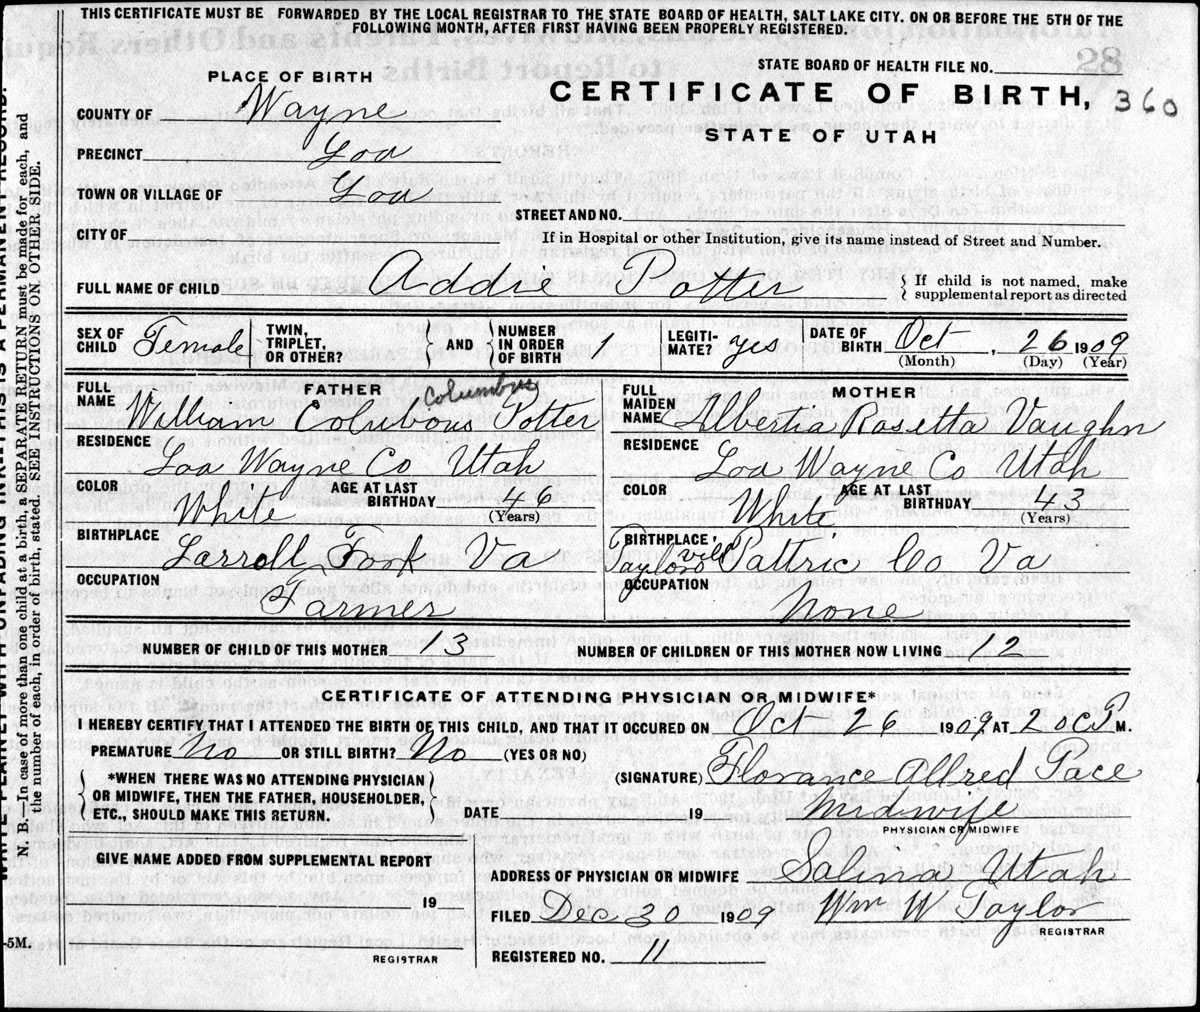 THIS CERTIFICATE MUST BE FORWARDED BY THE LOCAL REGISTRAR TO THE STATE BOARD OF HEALTH, SALT LAKE CITY. ON OR BEFORE THE 5TH OF THE
FOLLOWING MONTH, AFTER FIRST HAVING BEEN PROPERLY REGISTERED.
STATE BOARD OF HEALTH FILE NO.
PLACE OF BIRTH
CERTIFICATE OF BIRTH, 360
STATE OF UTAH
COUNTY OF Wayne
PRECINCT Loa
TOWN OR VILLAGE OF Loa
STREET AND NO.
CITY OF
If in Hospital or other Institution, give its name instead of Street and Number.
FULL NAME OF CHILD Addie Potter { If child is not named, make
supplemental report as directed
SEX OF CHILD Female
TWIN, TRIPLET, OR OTHER? } AND { NUMBER IN ORDER OF BIRTH 1
LEGITIMATE? yes
DATE OF BIRTH Oct, 26 1909
(Month) (Day) (Year)
FULL NAME FATHER Columbus
William Colubous Potter
FULL MAIDEN NAME MOTHER
Albertia Rosetta Vaughn
RESIDENCE Loa Wayne Co Utah
RESIDENCE Loa Wayne Co Utah
COLOR White AGE AT LAST BIRTHDAY 46 (Years)
COLOR White AGE AT LAST BIRTHDAY 43 (Years)
BIRTHPLACE Fork Va
BIRTHPLACE Taylorsvill Pattric Co Va
OCCUPATION Farmer
OCCUPATION None
NUMBER OF CHILD OF THIS MOTHER 13
NUMBER OF CHILDREN OF THIS MOTHER NOW LIVING 12
CERTIFICATE OF ATTENDING PHYSICIAN OR MIDWIFE*
I HEREBY CERTIFY THAT I ATTENDED THE BIRTH OF THIS CHILD, AND THAT IT OCCURED ON Oct 26 1909, AT 2 M.
PREMATURE No OR STILL BIRTH? No (YES OR NO)
{ *WHEN THERE WAS NO ATTENDING PHYSICIAN
OR MIDWIFE, THEN THE FATHER, HOUSEHOLDER,
ETC., SHOULD MAKE THIS RETURN. }
(SIGNATURE) Florance Allred Pace
DATE 19 Midwife
PHYSICIAN OR MIDWIFE
GIVE NAME ADDED FROM SUPPLEMENTAL REPORT
19
REGISTRAR
ADDRESS OF PHYSICIAN OR MIDWIFE Salina Utah
FILED Dec 30 1909 Wm W Taylor
REGISTRAR
REGISTERED NO. 11
N. B.—In case of more than one child at a birth, a SEPARATE RETURN must be made for each, and
the number of each, in order of birth, stated. SEE INSTRUCTIONS ON OTHER SIDE.
-5M.